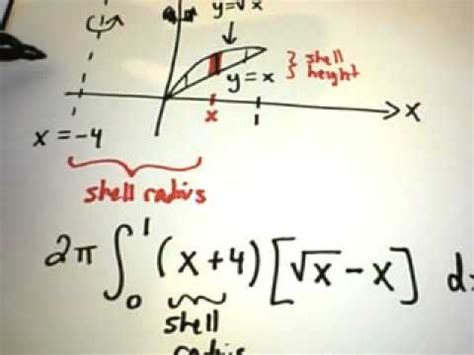 y=√x
y=x
} shell
height
x
1
X
x=-4
shell radius
2π ∫₀¹ (x+4) [√x-x] d
shell
radius